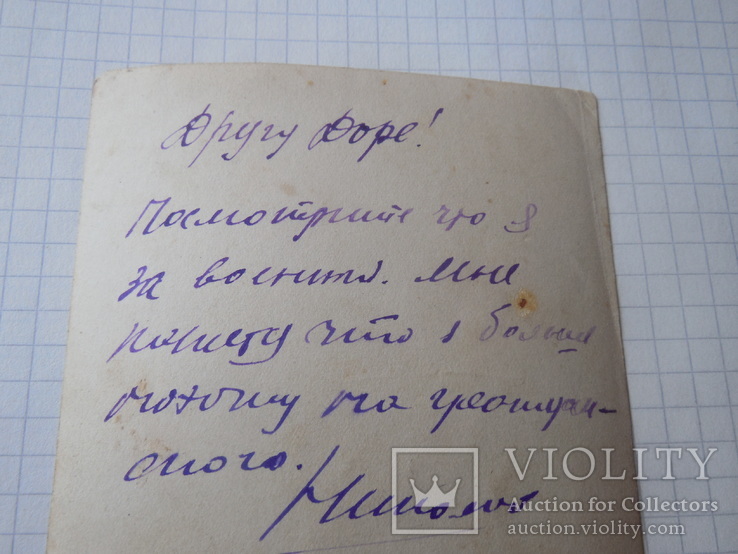 Другу Доре!
Посмотрите что я
за военный. Мне
кажется что я больше
похожу на граждан-
ского.
VIOLITY
Auction for Collectors
auction.violity.com